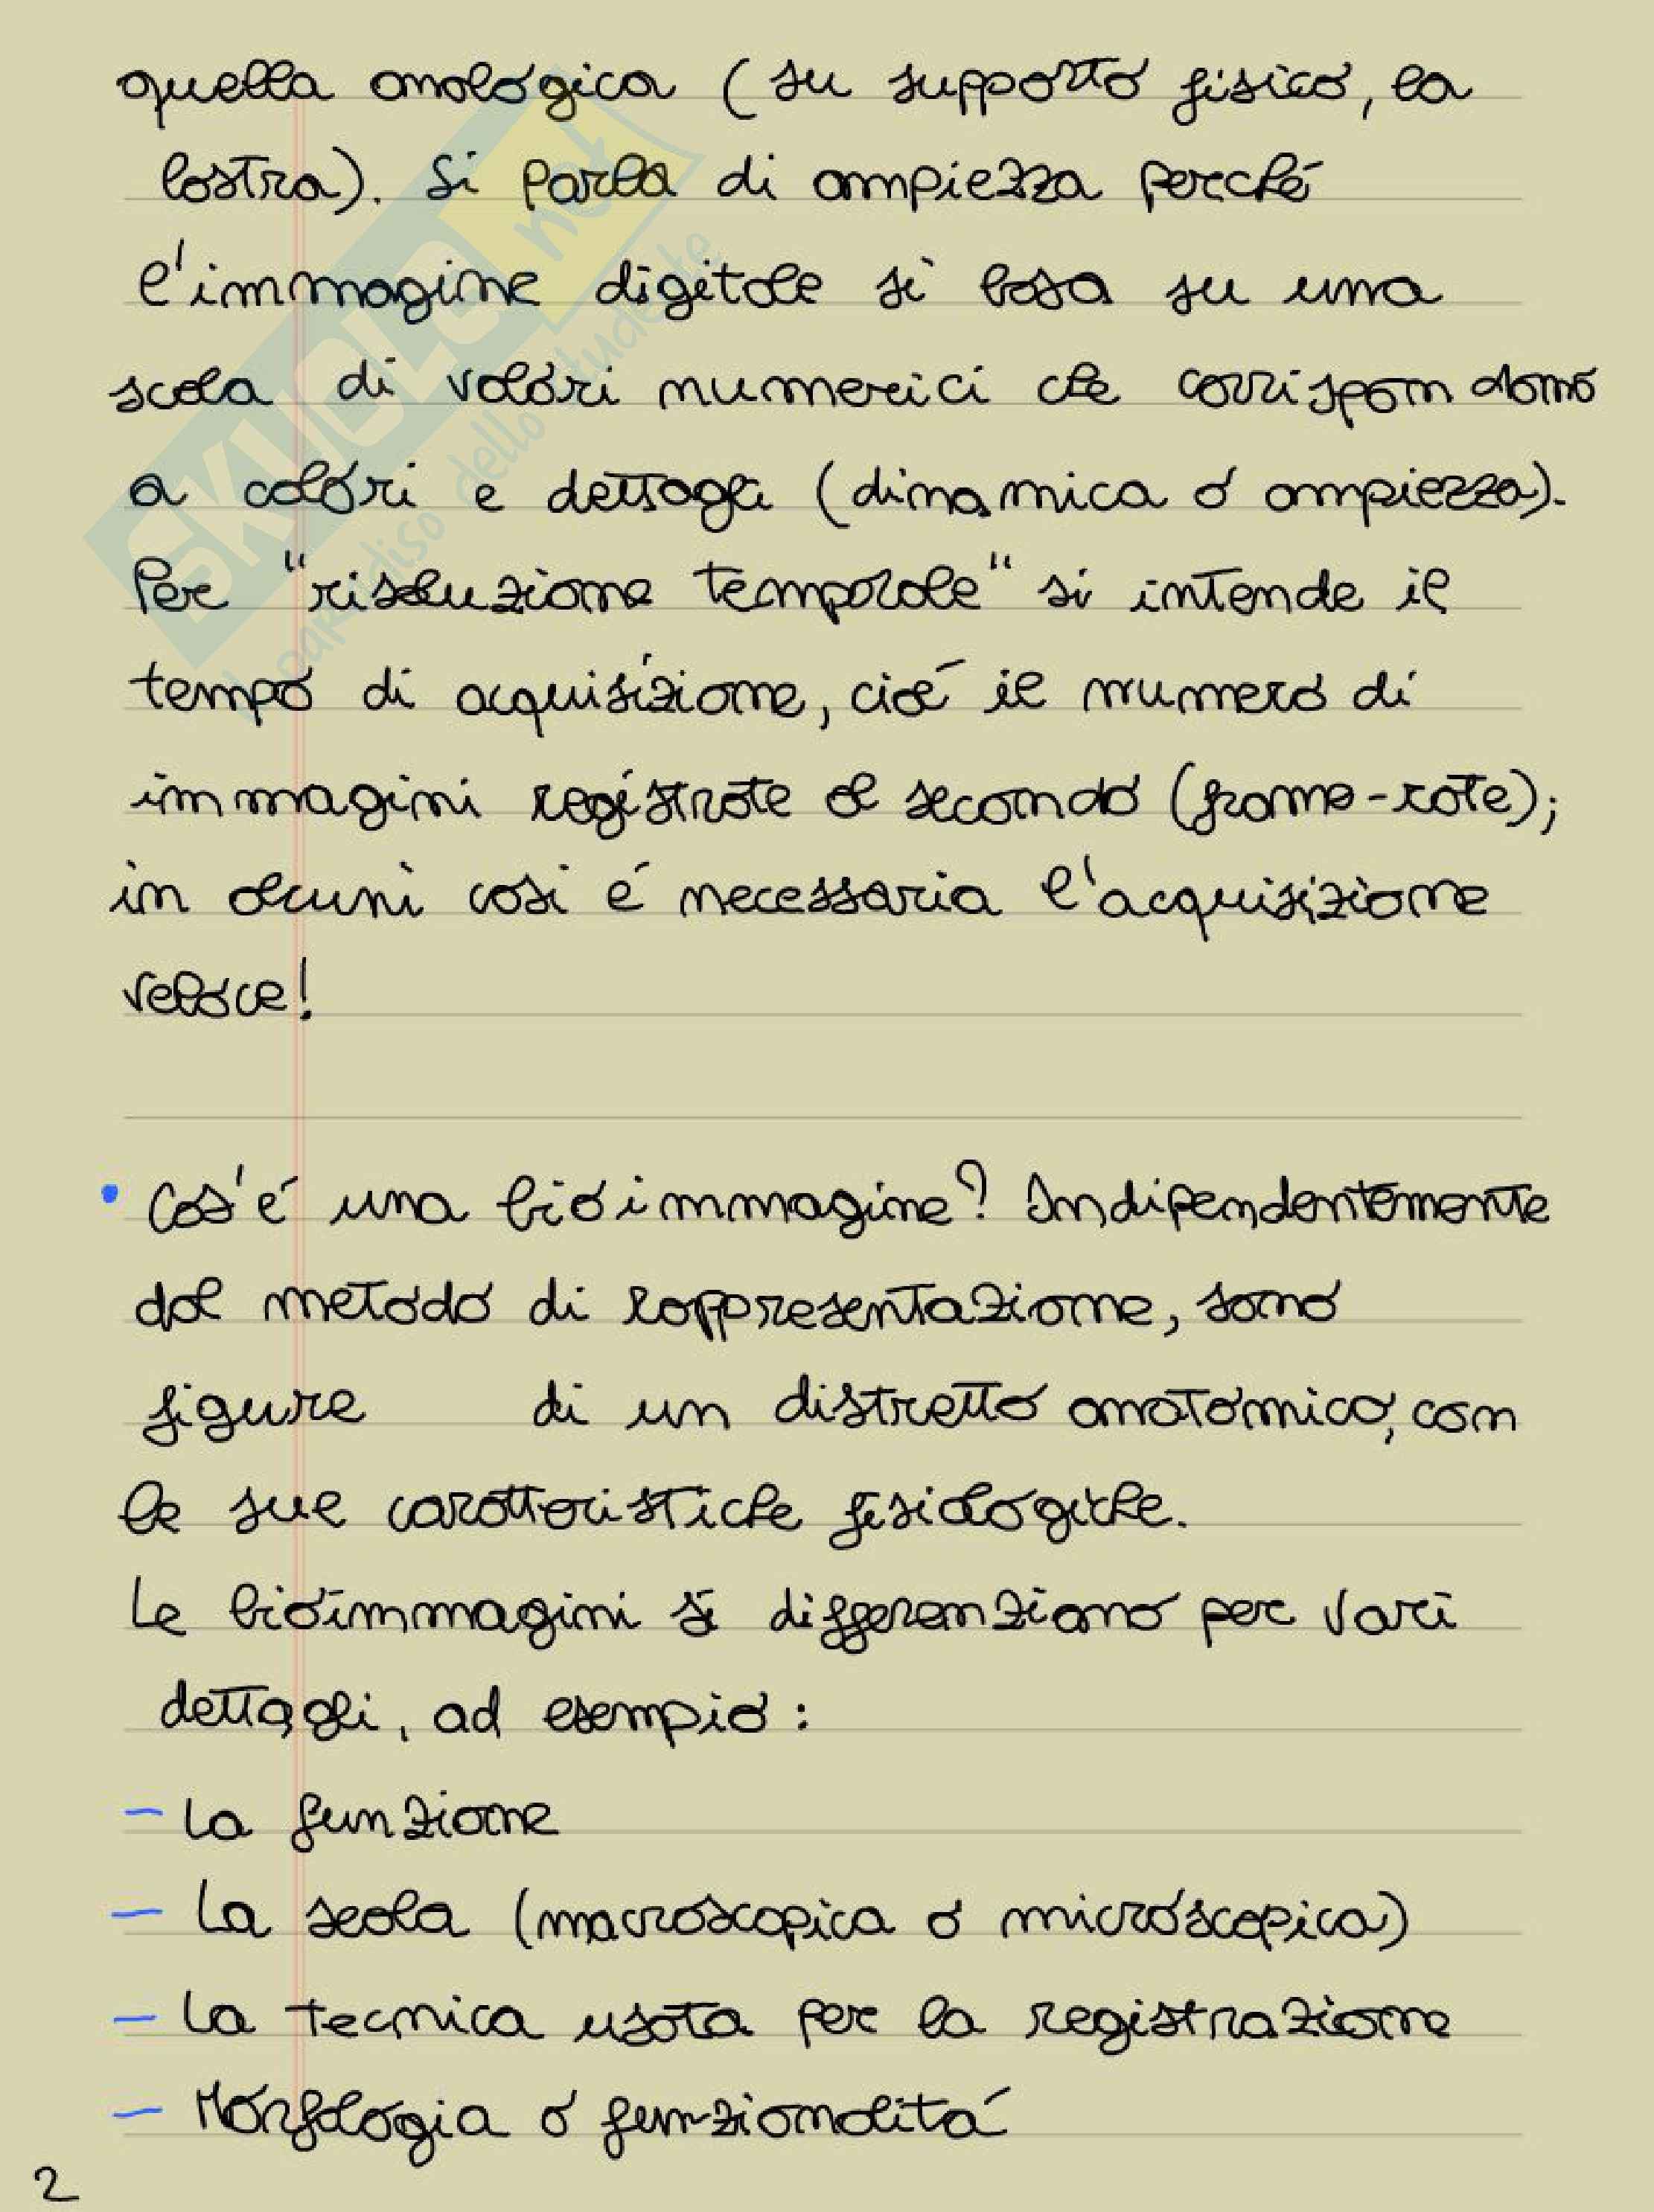 quella analogica (su supporto fisico, la
lastra). Si parla di ampiezza perché
l'immagine digitale si basa su una
scala di valori numerici che corrispondono
a colori e dettagli (dinamica o ampiezza).
Per "risoluzione temporale" si intende il
tempo di acquisizione, cioé il numero di
immagini registrate al secondo (frame-rate);
in alcuni casi é necessaria l'acquisizione
veloce!
• Cos'é una bioimmagine? Indipendentemente
dal metodo di rappresentazione, sono
figure di un distretto anatomico, con
le sue caratteristiche fisiologiche.
Le bioimmagini si differenziano per vari
dettagli, ad esempio:
- La funzione
- La scala (macroscopica o microscopica)
- La tecnica usata per la registrazione
- Morfologia o funzionalitá
2
SKUOLA.net
il paradiso dello studente